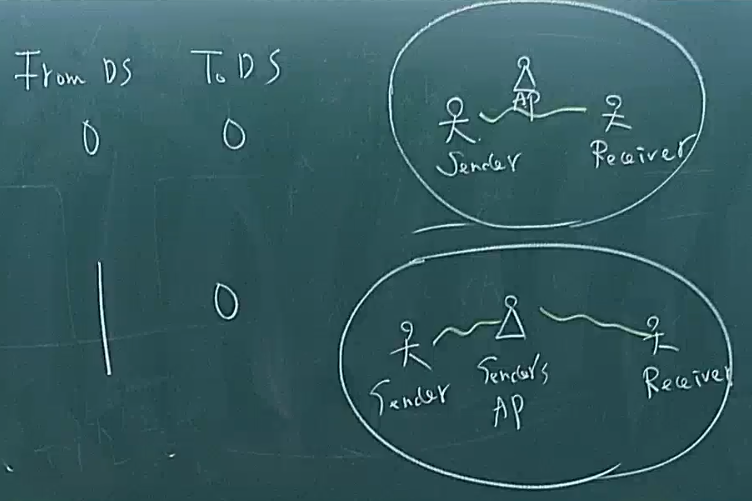 From DS To DS
0 0
AP
Sender Receiver
1 0
Sender Sender's Receiver
AP